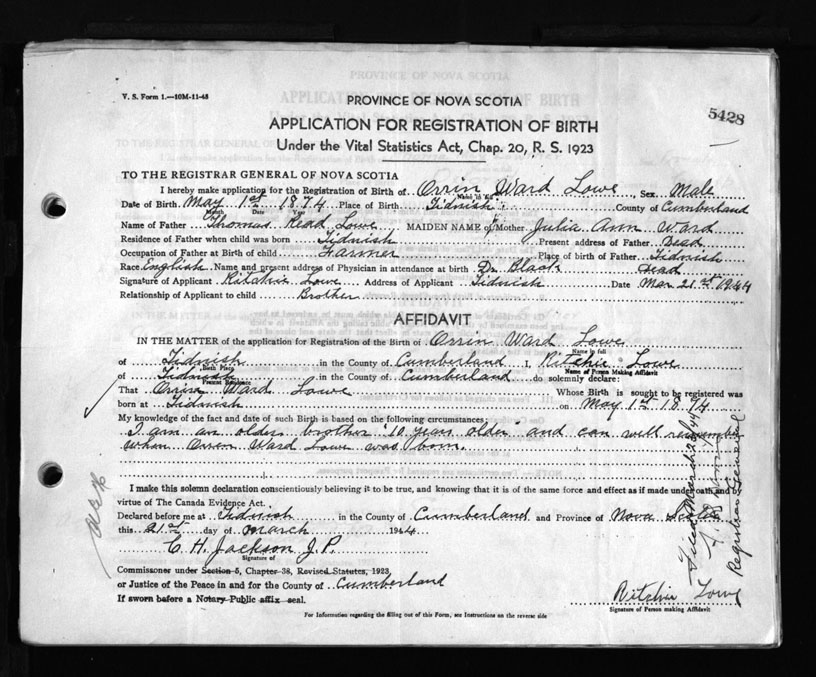 V. S. Form 1.—10M-11-43
5428
PROVINCE OF NOVA SCOTIA
APPLICATION FOR REGISTRATION OF BIRTH
Under the Vital Statistics Act, Chap. 20, R. S. 1923
TO THE REGISTRAR GENERAL OF NOVA SCOTIA
I hereby make application for the Registration of Birth of Orrin Ward Lowe Sex Male
Name in full
Date of Birth May 1st 1874 Place of Birth Tidnish County of Cumberland
Month Date Year
Name of Father Thomas Read Lowe MAIDEN NAME of Mother Julia Ann Ward
Residence of Father when child was born Tidnish Present address of Father Dead
Occupation of Father at Birth of child Farmer Place of birth of Father Tidnish
Race English Name and present address of Physician in attendance at birth Dr. Black dead
Signature of Applicant Ritchie Lowe Address of Applicant Tidnish Date Mar 21st 1944
Relationship of Applicant to child Brother
AFFIDAVIT
IN THE MATTER of the application for Registration of the Birth of Orrin Ward Lowe
Name in full
of Tidnish in the County of Cumberland I, Ritchie Lowe
Birth Place Name of Person Making Affidavit
of Tidnish in the County of Cumberland do solemnly declare:
Present Residence
That Orrin Ward Lowe Whose Birth is sought to be registered was
born at Tidnish on May 1st 1874
My knowledge of the fact and date of such Birth is based on the following circumstances:
I am an older brother "10 years older" and can well remember
when Orren Ward Lowe was born.
I make this solemn declaration conscientiously believing it to be true, and knowing that it is of the same force and effect as if made under oath and by
virtue of The Canada Evidence Act.
Declared before me at Tidnish in the County of Cumberland and Province of Nova Scotia
this 21st day of March 1944
C. H. Jackson J.P.
Signature of
Commissioner under Section 5, Chapter 38, Revised Statutes, 1923,
or Justice of the Peace in and for the County of Cumberland
If sworn before a Notary Public affix seal.
Ritchie Lowe
Signature of Person making Affidavit
For Information regarding the filling out of this Form, see Instructions on the reverse side
Filed March 23/44
Registrar General